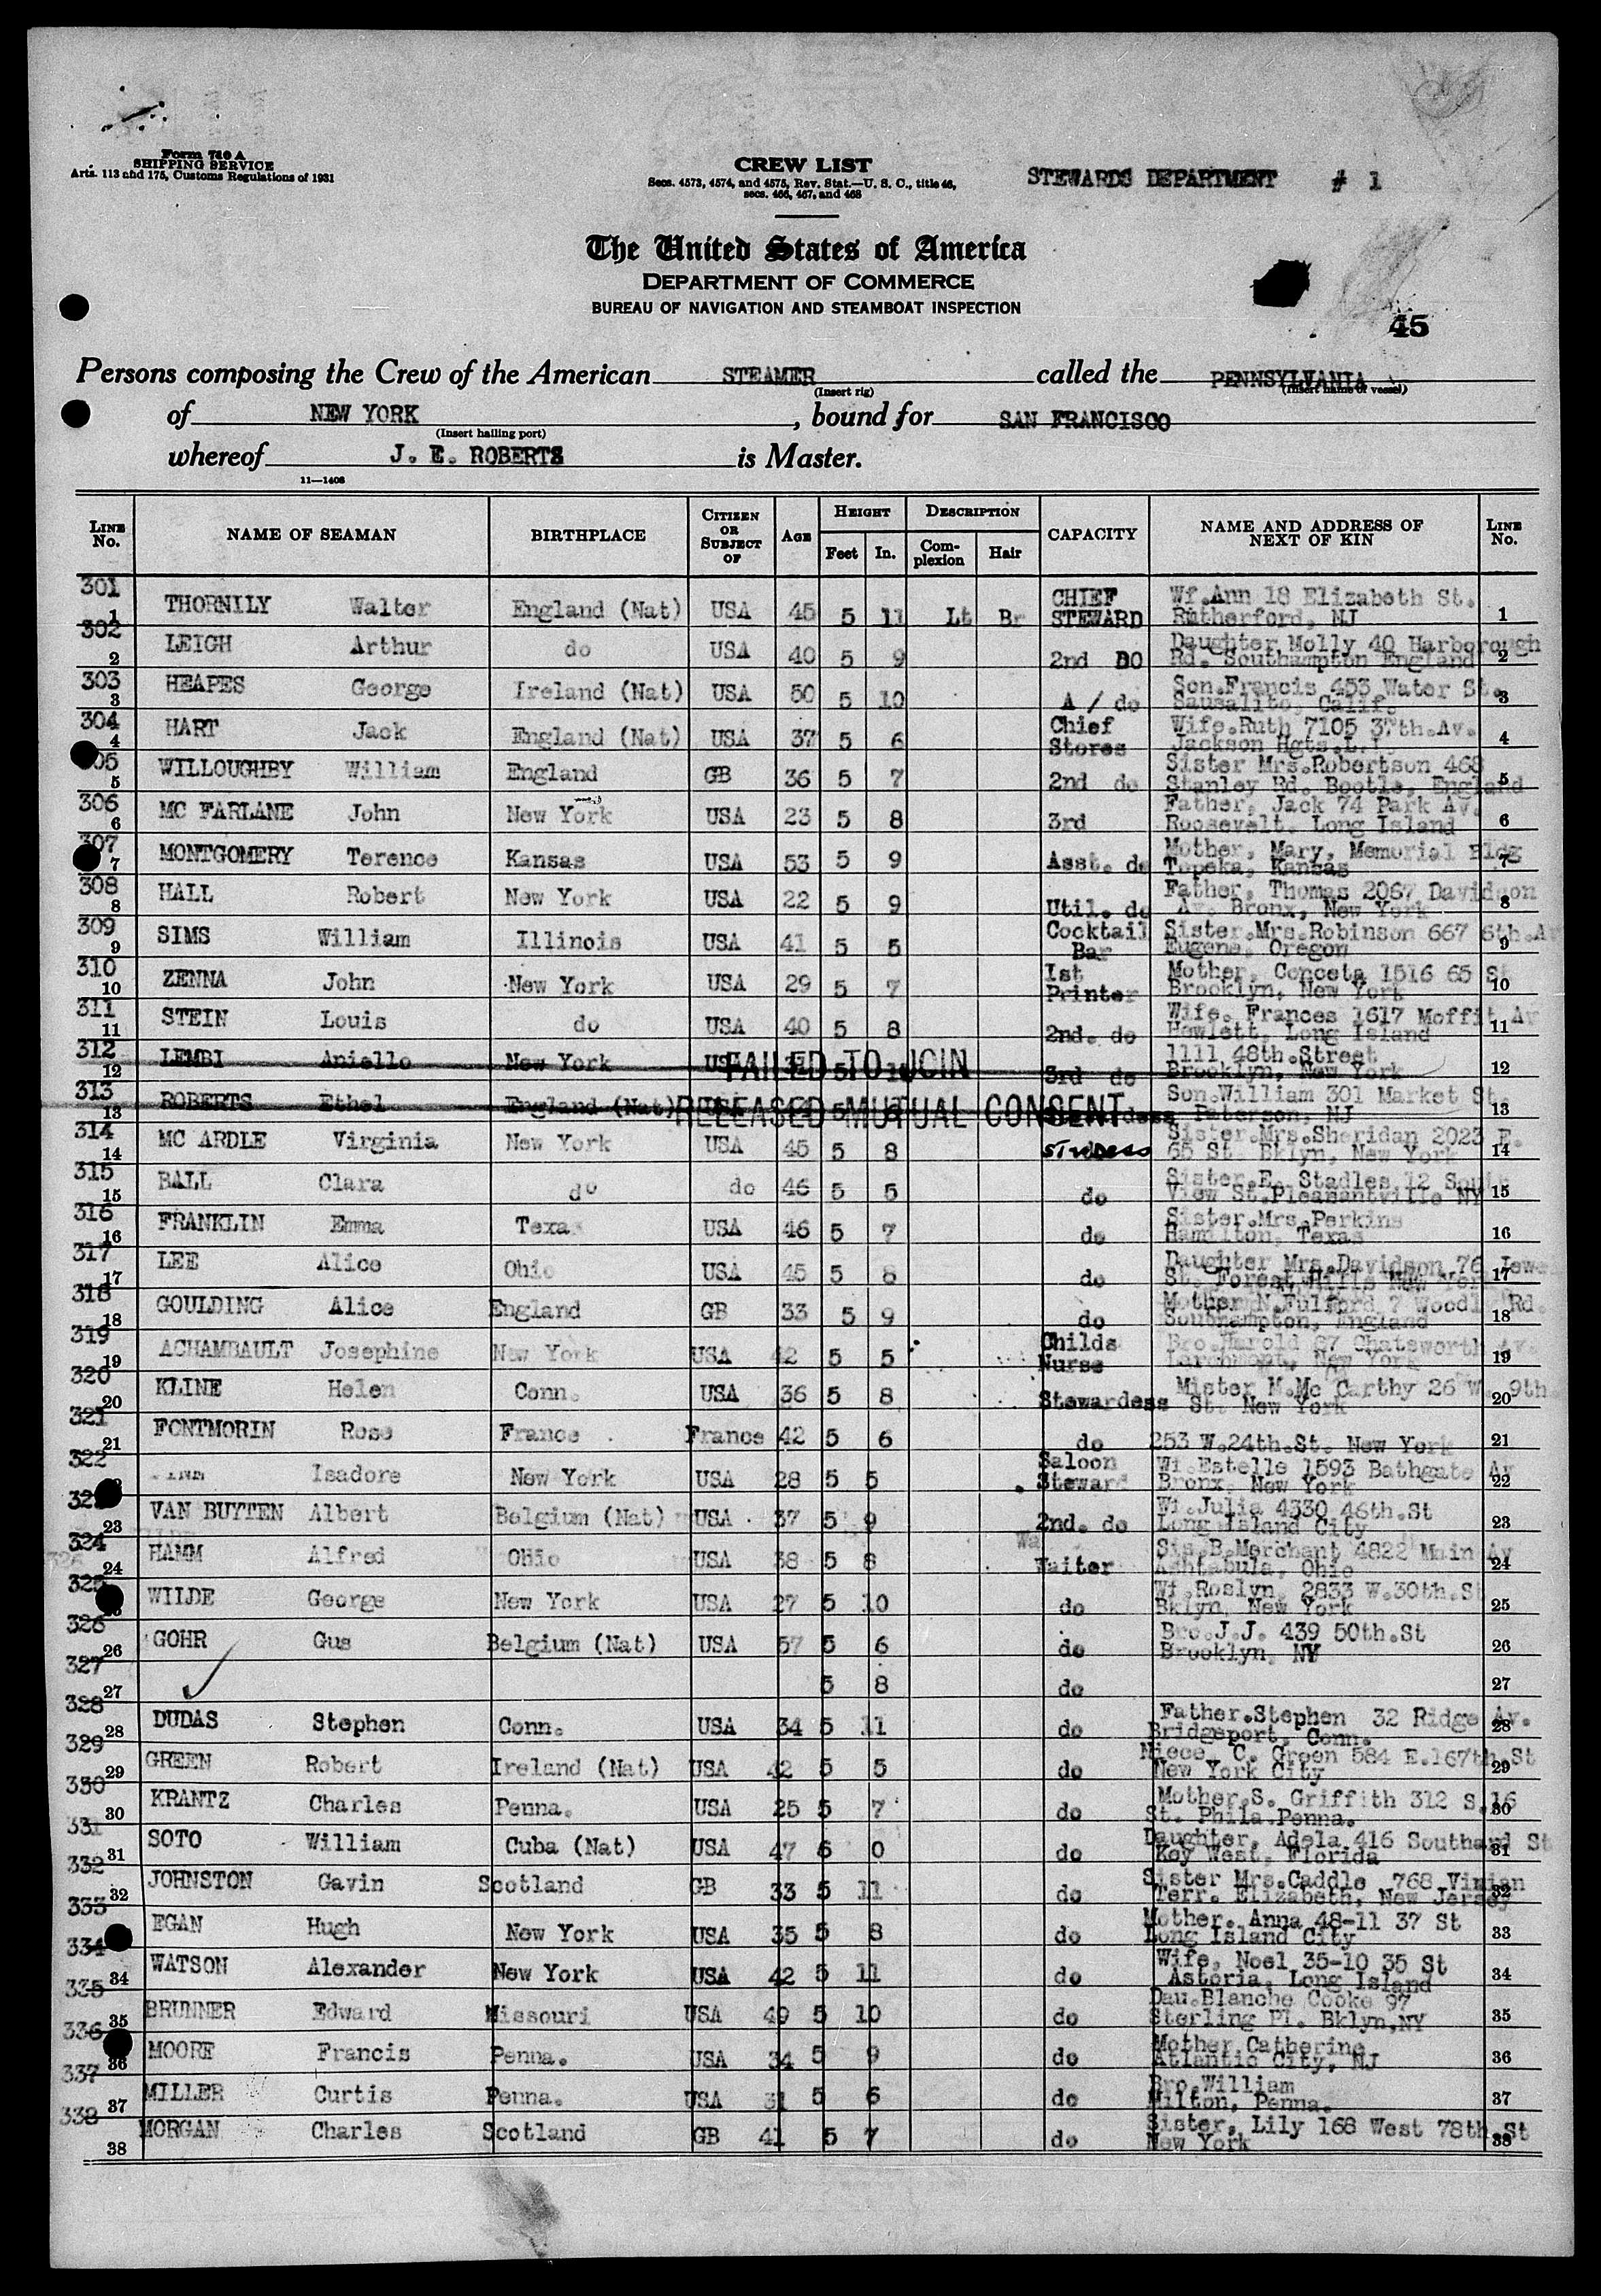 Form 710 A
SHIPPING SERVICE
Arts. 113 and 175, Customs Regulations of 1931
CREW LIST
Secs. 4573, 4574, and 4575, Rev. Stat.—U. S. C., title 46,
secs. 466, 467, and 468
STEWARDS DEPARTMENT # 1
The United States of America
DEPARTMENT OF COMMERCE
BUREAU OF NAVIGATION AND STEAMBOAT INSPECTION
45
Persons composing the Crew of the American STEAMER called the PENNSYLVANIA
(Insert rig) (Insert name of vessel)
of NEW YORK, bound for SAN FRANCISCO
(Insert hailing port)
whereof J. E. ROBERTS is Master.
11—1408
LINE No. NAME OF SEAMAN BIRTHPLACE CITIZEN OR SUBJECT OF AGE HEIGHT Feet In. DESCRIPTION Complexion Hair CAPACITY NAME AND ADDRESS OF NEXT OF KIN LINE No.
301 1 THORNILY Walter England (Nat) USA 45 5 11 Lt Br CHIEF STEWARD Wf.Ann 18 Elizabeth St. Rutherford, NJ 1
302 2 LEIGH Arthur do USA 40 5 9 2nd DO Daughter Molly 40 Harborough Rd. Southampton England 2
303 3 HEAPES George Ireland (Nat) USA 50 5 10 A / do Son.Francis 453 Water St. Sausalito, Calif. 3
304 4 HART Jack England (Nat) USA 37 5 6 Chief Stores Wife.Ruth 7105 37th.Av. Jackson Hgts.L.I. 4
305 5 WILLOUGHBY William England GB 36 5 7 2nd do Sister Mrs.Robertson 468 Stanley Rd. Bootle, England 5
306 6 MC FARLANE John New York USA 23 5 8 3rd Father, Jack 74 Park Av. Roosevelt. Long Island 6
307 7 MONTGOMERY Terence Kansas USA 53 5 9 Asst. do Mother, Mary, Memorial Bldg Topeka, Kansas 7
308 8 HALL Robert New York USA 22 5 9 Util. do Father, Thomas 2067 Davidson Av. Bronx, New York 8
309 9 SIMS William Illinois USA 41 5 5 Cocktail Bar Sister.Mrs.Robinson 667 6th.Av Eugene, Oregon 9
310 10 ZENNA John New York USA 29 5 7 1st Printer Mother, Conceta 1516 65 St Brooklyn, New York 10
311 11 STEIN Louis do USA 40 5 8 2nd. do Wife. Frances 1617 Moffit Av Hewlett, Long Island 11
312 12 LEMBI Aniello New York USA FAILED TO JOIN 5 3rd do 1111 48th.Street Brooklyn, New York 12
313 13 ROBERTS Ethel England (Nat) RELEASED MUTUAL CONSENT 5 Son.William 301 Market St. Paterson, NJ 13
314 14 MC ARDLE Virginia New York USA 45 5 8 STWDESS Sister.Mrs.Sheridan 2023 E. 65 St. Bklyn, New York 14
315 15 BALL Clara do do 46 5 5 do Sister.E. Stadles 12 South View St.Pleasantville NY 15
316 16 FRANKLIN Emma Texas USA 46 5 7 do Sister.Mrs.Perkins Hamilton, Texas 16
317 17 LEE Alice Ohio USA 45 5 8 do Daughter Mrs.Davidson 76 St. Forest Hills New York 17
318 18 GOULDING Alice England GB 33 5 9 do Mother N.Fulford 7 Rd. Southampton, England 18
319 19 ACHAMBAULT Josephine New York USA 42 5 5 Childs Nurse Bro.Harold 67 Chatsworth Av. Larchmont, New York 19
320 20 KLINE Helen Conn. USA 36 5 8 Stewardess Mister M.Mc Carthy 26 W. 9th St. New York 20
321 21 FONTMORIN Rose France France 42 5 6 do 253 W.24th.St. New York 21
322 Isadore New York USA 28 5 5 Saloon Steward Wf.Estelle 1593 Bathgate Av Bronx, New York 22
323 23 VAN BUYTEN Albert Belgium (Nat) USA 37 5 9 2nd. do Wf.Julia 4330 46th.St Long Island City 23
324 24 HAMM Alfred Ohio USA 38 5 8 Waiter Sis.B.Merchant 4822 Main Av Ashtabula, Ohio 24
325 WILDE George New York USA 27 5 10 do Wf.Roslyn. 2833 W.30th.St Bklyn, New York 25
326 26 GOHR Gus Belgium (Nat) USA 57 5 6 do Bro.J.J. 439 50th.St Brooklyn, NY 26
327 27 5 8 do 27
328 28 DUDAS Stephen Conn. USA 34 5 11 do Father.Stephen 32 Ridge Av. Bridgeport, Conn. 28
329 29 GREEN Robert Ireland (Nat) USA 42 5 5 do Niece, C. Green 584 E.167th.St New York City 29
330 30 KRANTZ Charles Penna. USA 25 5 7 do Mother.S. Griffith 312 S.16 St. Phila.Penna. 30
331 31 SOTO William Cuba (Nat) USA 47 6 0 do Daughter, Adela 416 Southard St Key West, Florida 31
332 32 JOHNSTON Gavin Scotland GB 33 5 11 do Sister Mrs.Caddle 768 Vivian Terr. Elizabeth, New Jersey 32
333 EGAN Hugh New York USA 35 5 8 do Mother. Anna 48-11 37 St Long Island City 33
334 34 WATSON Alexander New York USA 42 5 11 do Wife, Noel 35-10 35 St Astoria, Long Island 34
335 35 BRUNNER Edward Missouri USA 49 5 10 do Dau.Blanche Cooke 97 Sterling Pl. Bklyn,NY 35
336 36 MOORE Francis Penna. USA 34 5 9 do Mother Catherine Atlantic City, NJ 36
337 37 MILLER Curtis Penna. USA 31 5 6 do Bro.William Milton, Penna. 37
338 38 MORGAN Charles Scotland GB 41 5 7 do Sister, Lily 168 West 78th.St New York 38